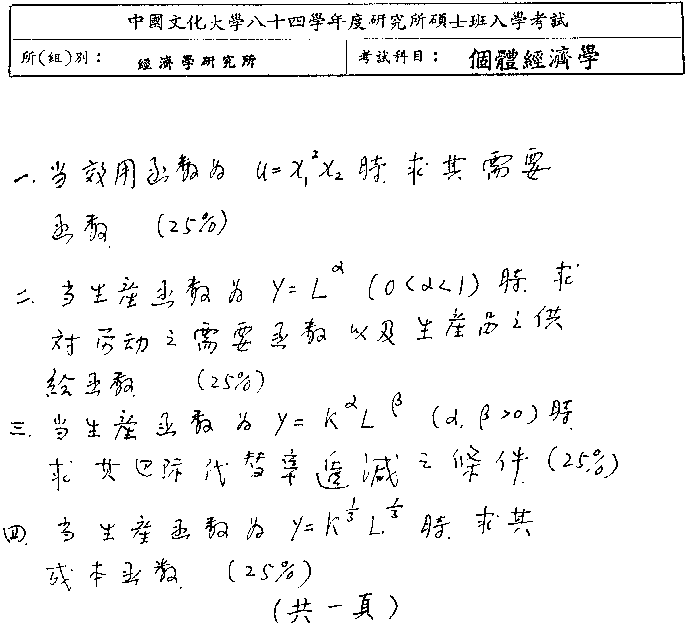 中國文化大學八十四學年度研究所碩士班入學考試
所(組)別: 經濟學研究所 考試科目: 個體經濟學
一. 当效用函数为 U=X₁²X₂ 時 求其需要
函数 (25%)
二. 当生產函数为 Y=L^α (0<α<1) 時 求
対劳动之需要函数以及生產品之供
給函数 (25%)
三. 当生產函数为 y=K^α L^β (α, β>0) 時
求其边际代替率遞減之條件 (25%)
四. 当生產函数为 y=K^⅓ L^⅓ 時 求其
成本函数 (25%)
(共一頁)